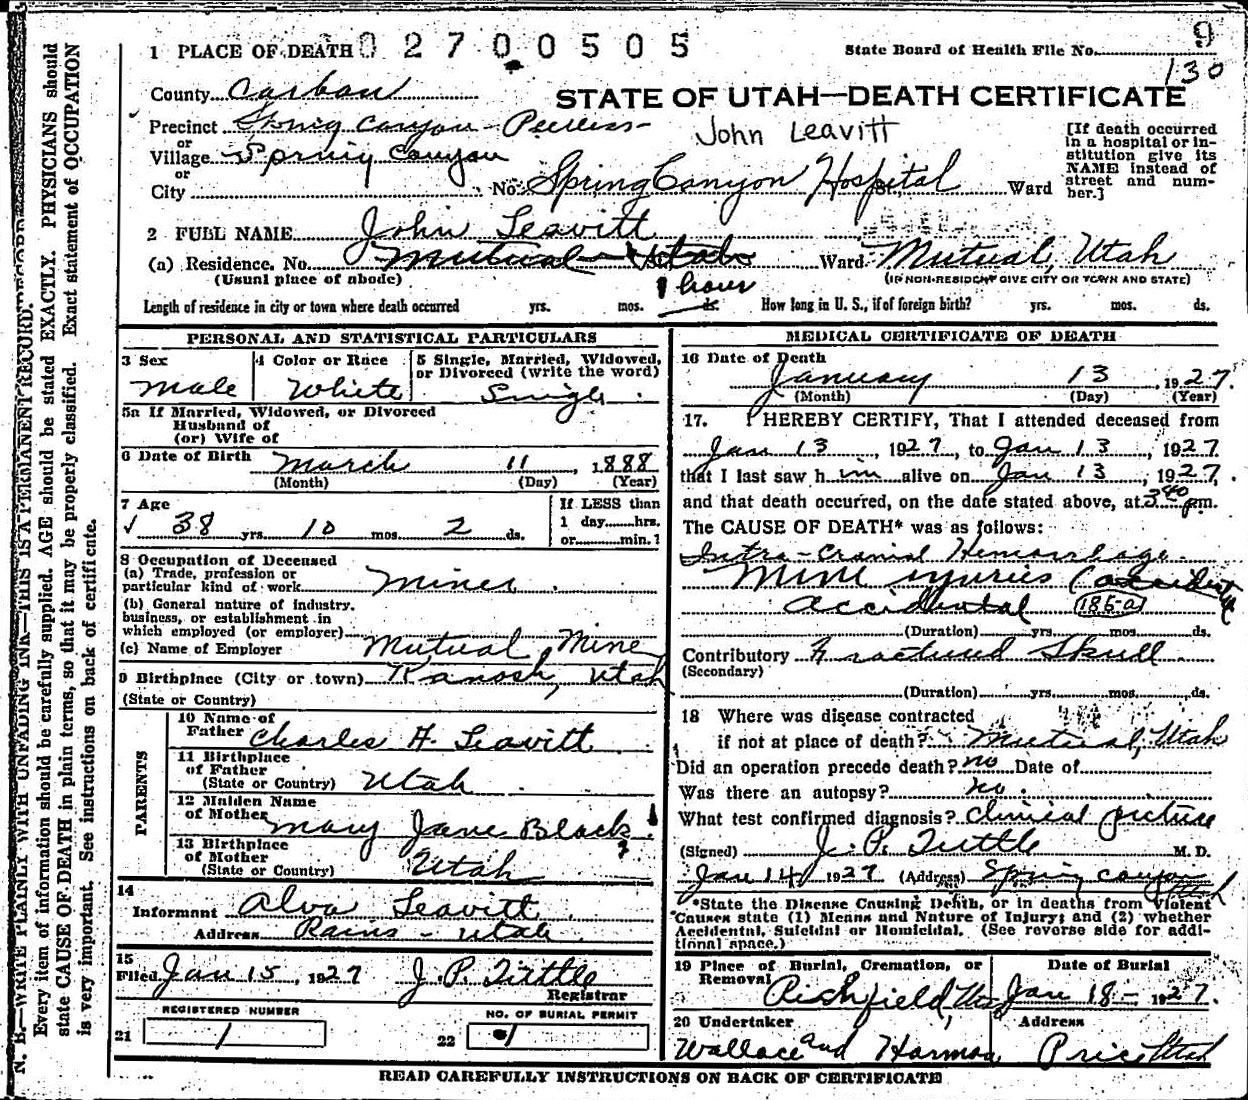 1 PLACE OF DEATH 0 2 7 0 0 5 0 5 State Board of Health File No. 9
130
County Carbon
STATE OF UTAH—DEATH CERTIFICATE
Precinct Spring Canyon - Peerless
John Leavitt
or
Village Spring Canyon
or
City No. Spring Canyon Hospital St. Ward
[If death occurred
in a hospital or in-
stitution give its
NAME instead of
street and num-
ber.]
2 FULL NAME John Leavitt
(a) Residence. No. Mutual Utah Ward Mutual, Utah
(Usual place of abode) (IF NON-RESIDENT GIVE CITY OR TOWN AND STATE)
1 hour
Length of residence in city or town where death occurred yrs. mos. ds. How long in U. S., if of foreign birth? yrs. mos. ds.
PERSONAL AND STATISTICAL PARTICULARS
3 Sex Male
4 Color or Race White
5 Single, Married, Widowed,
or Divorced (write the word)
Single
5a If Married, Widowed, or Divorced
Husband of
(or) Wife of
6 Date of Birth March 11, 1888
(Month) (Day) (Year)
7 Age
38 yrs. 10 mos. 2 ds.
If LESS than
1 day......hrs.
or......min.?
8 Occupation of Deceased
(a) Trade, profession or
particular kind of work Miner
(b) General nature of industry.
business, or establishment in
which employed (or employer)
(c) Name of Employer Mutual Mine
9 Birthplace (City or town) Kanosh, Utah
(State or Country)
PARENTS
10 Name of
Father Charles H. Leavitt
11 Birthplace
of Father
(State or Country) Utah
12 Maiden Name
of Mother Mary Jane Black
13 Birthplace
of Mother
(State or Country) Utah
14
Informant Alva Leavitt
Address Rains - Utah
15
Filed Jan 15, 1927 J. P. Tuttle
Registrar
21 REGISTERED NUMBER
1
22 NO. OF BURIAL PERMIT
1
MEDICAL CERTIFICATE OF DEATH
16 Date of Death
January 13, 1927.
(Month) (Day) (Year)
17. I HEREBY CERTIFY, That I attended deceased from
Jan 13, 1927, to Jan 13, 1927
that I last saw him alive on Jan 13, 1927,
and that death occurred, on the date stated above, at 3 40 pm.
The CAUSE OF DEATH* was as follows:
Intra-Cranial Hemorrhage.
Mine injuries (accidental
accidental 185-a
(Duration) yrs. mos. ds.
Contributory Fractured Skull
(Secondary)
(Duration) yrs. mos. ds.
18 Where was disease contracted
if not at place of death? Mutual, Utah
Did an operation precede death? no Date of
Was there an autopsy? no.
What test confirmed diagnosis? Clinical picture
(Signed) J. P. Tuttle M. D.
Jan 14 1927 (Address) Spring Canyon
Utah
*State the Disease Causing Death, or in deaths from Violent
Causes state (1) Means and Nature of Injury; and (2) whether
Accidental, Suicidal or Homicidal. (See reverse side for addi-
tional space.)
19 Place of Burial, Cremation, or
Removal Richfield, Utah
Date of Burial
Jan 18 - 1927.
20 Undertaker
Wallace and Harmon
Address
Price Utah
READ CAREFULLY INSTRUCTIONS ON BACK OF CERTIFICATE
N. B.—WRITE PLAINLY WITH UNFADING INK—THIS IS A PERMANENT RECORD.
Every item of information should be carefully supplied. AGE should be stated EXACTLY. PHYSICIANS should
state CAUSE OF DEATH in plain terms, so that it may be properly classified. Exact statement of OCCUPATION
is very important. See instructions on back of certificate.